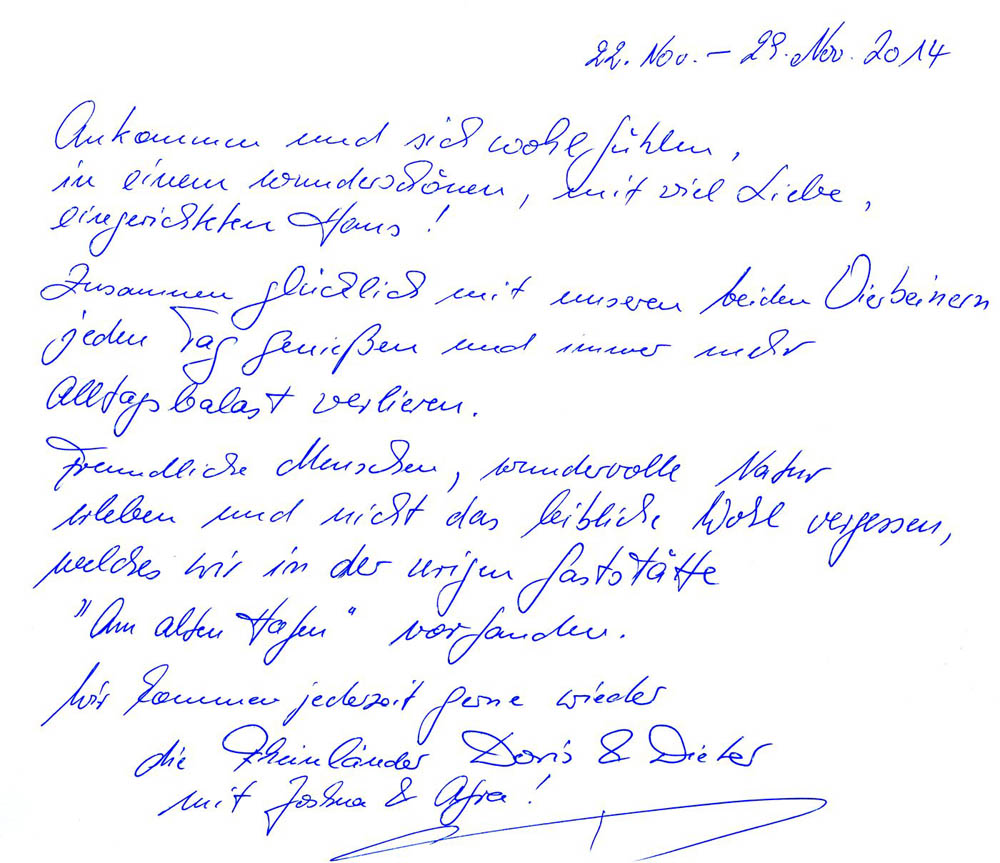 22. Nov. – 29. Nov. 2014
Ankommen und sich wohlfühlen,
in einem wunderschönen, mit viel Liebe,
eingerichteten Haus!
Zusammen glücklich mit unseren beiden Vierbeinern
jeden Tag genießen und immer mehr
Alltagsbalast verlieren.
Freundliche Menschen, wundervolle Natur
erleben und nicht das leibliche Wohl vergessen,
welches wir in der urigen Gaststätte
"Am alten Hafen" vorfanden.
Wir kommen jederzeit gerne wieder
die Rheinländer Doris & Dieter
mit Joshua & Afra!